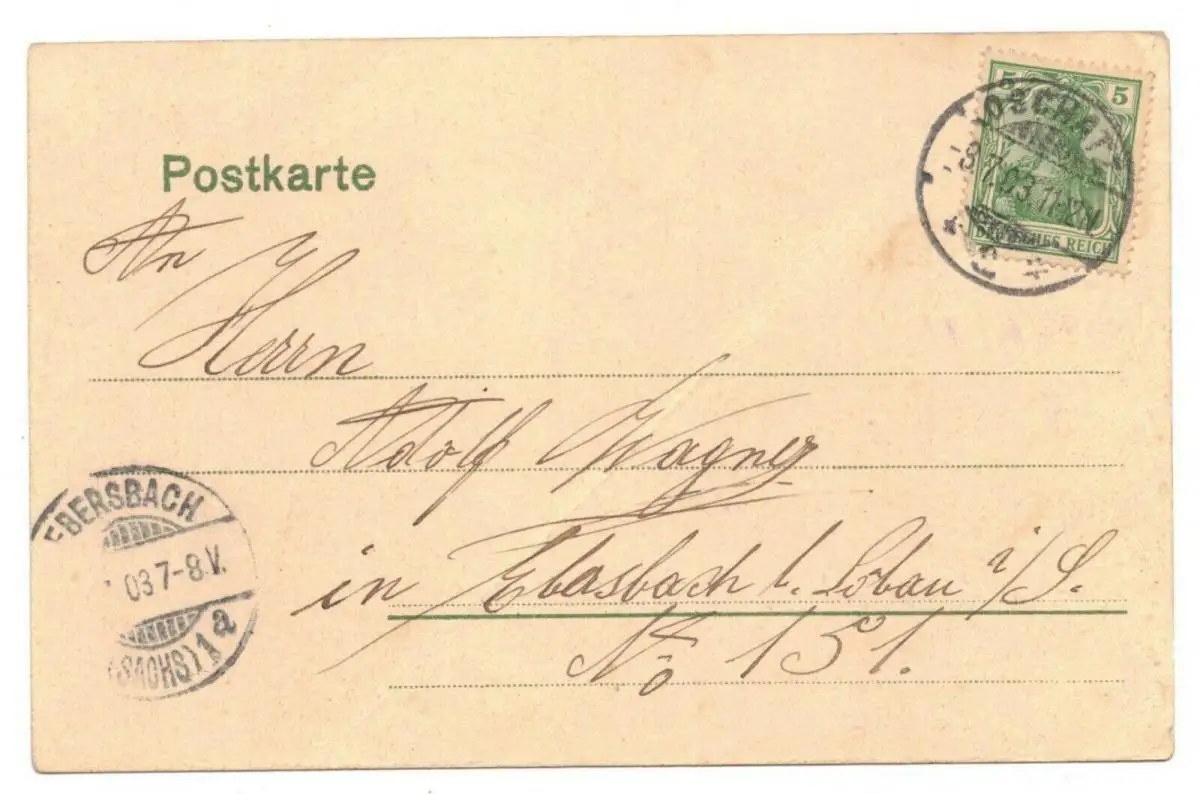 Postkarte
5 5
OSCHATZ
7.03.11-12V
DEUTSCHES REICH
An
Herrn
Adolf Wagner
in Ebersbach b. Löbau i/S.
No 151.
EBERSBACH
03 7-8.V.
(SACHS) 1 a